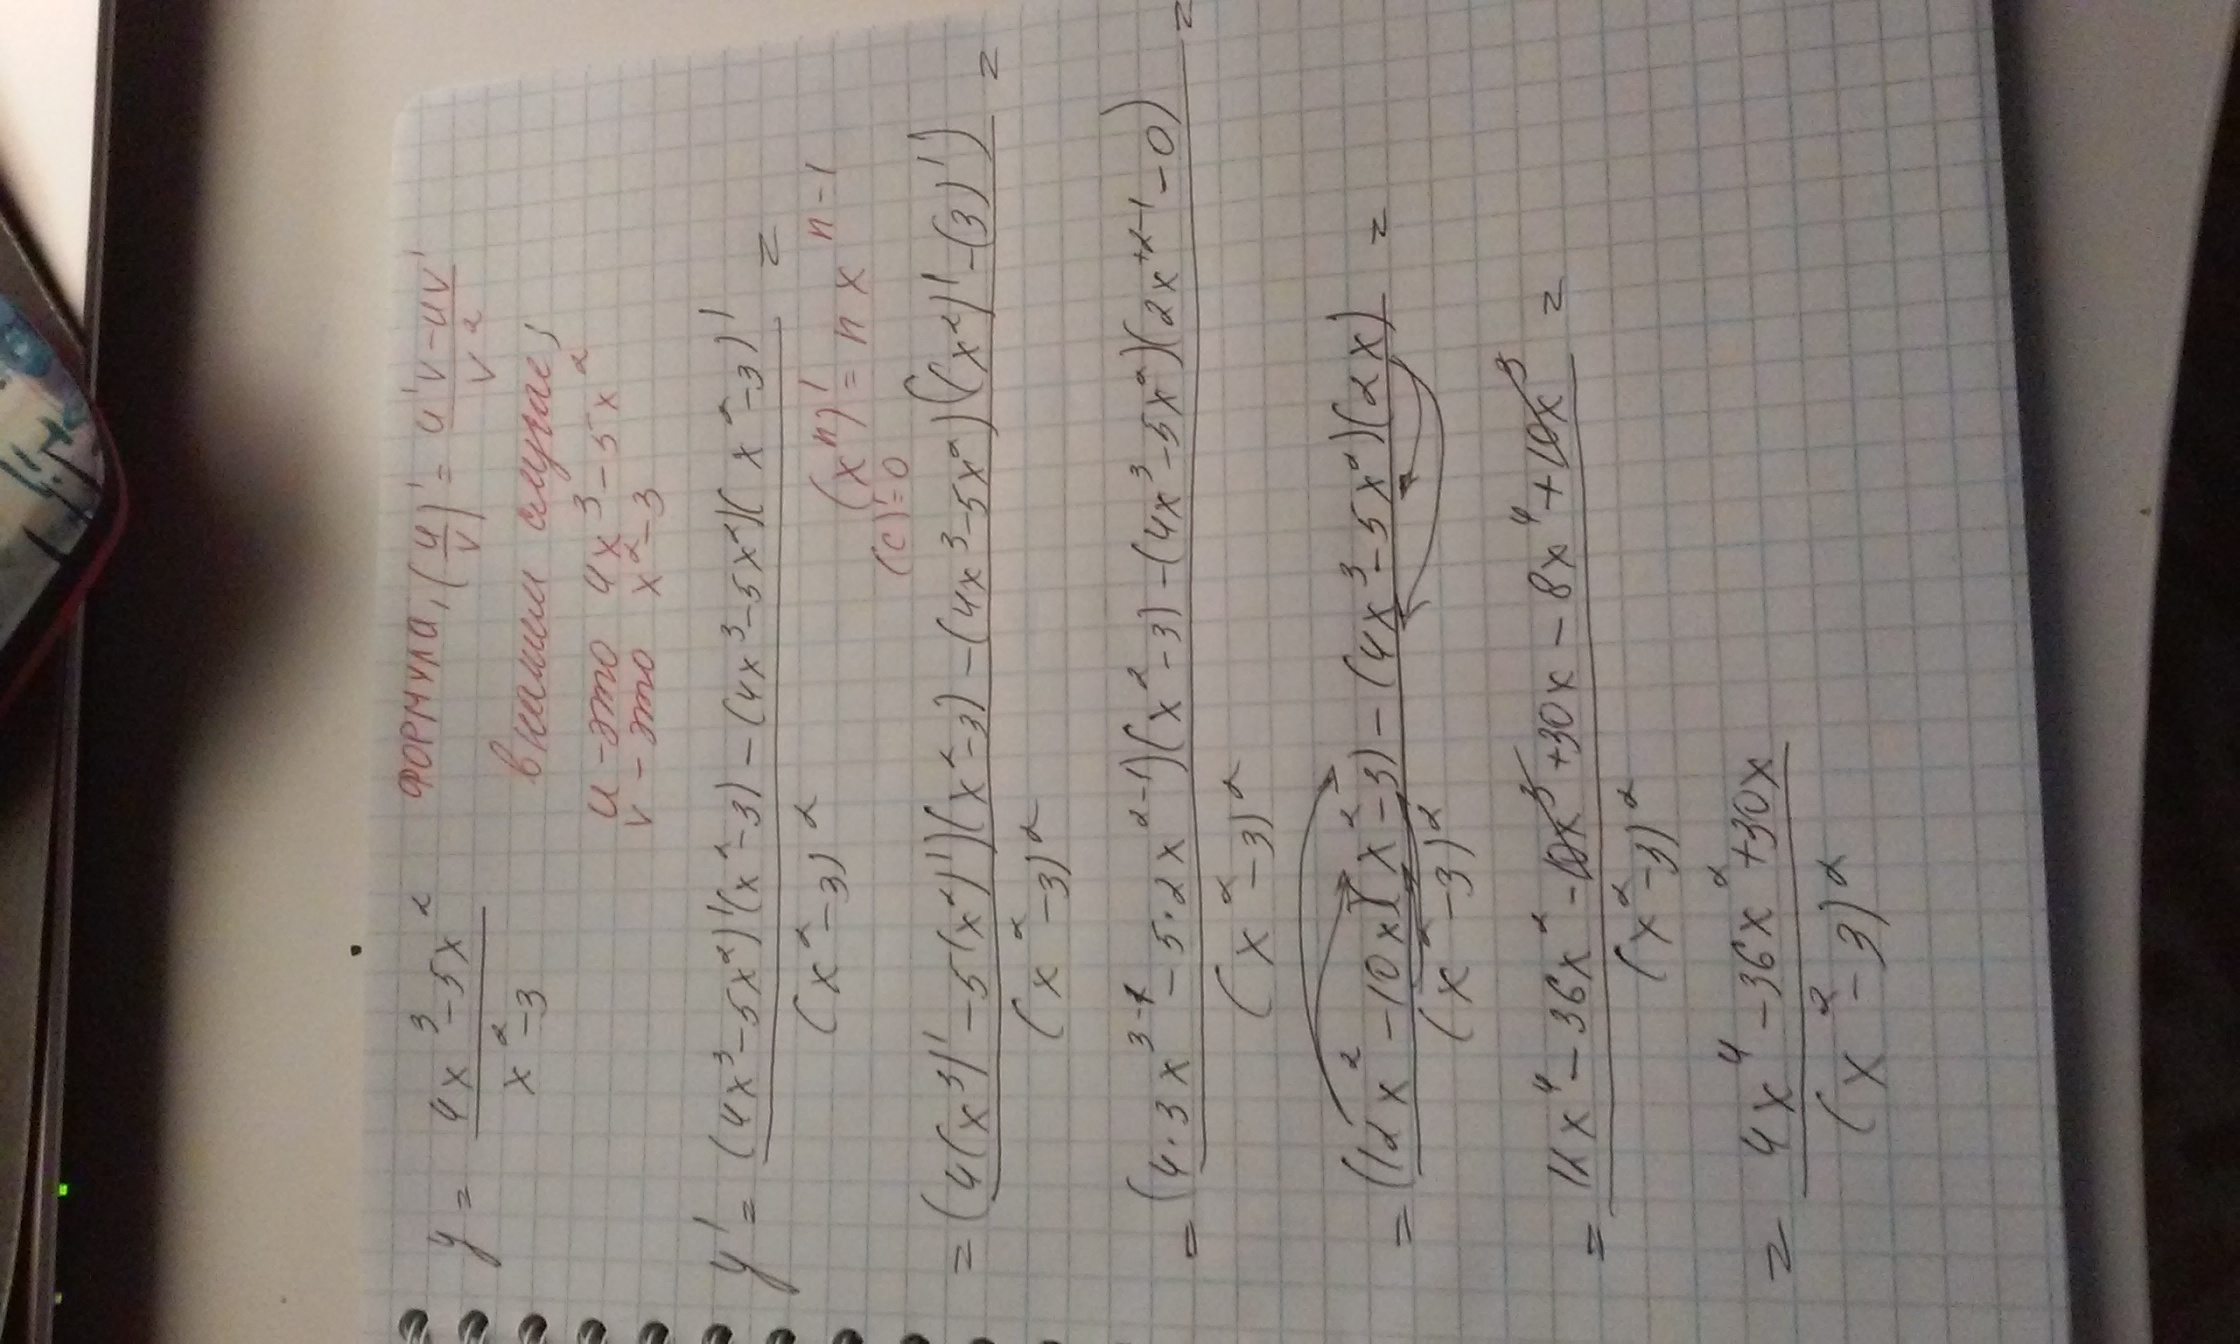 y = (4x³-5x²)/(x²-3) ФОРМУЛА, (u/v)' = (u'v-uv')/v²
в нашем случае,
u - это 4x³-5x²
v - это x²-3
y' = ((4x³-5x²)'(x²-3)-(4x³-5x²)(x²-3)')/(x²-3)² =
(xⁿ)' = n xⁿ⁻¹
(c)'=0
= ((4(x³)'-5(x²)')(x²-3)-(4x³-5x²)((x²)'-(3)'))/(x²-3)² =
= ((4·3x³⁻¹-5·2x²⁻¹)(x²-3)-(4x³-5x²)(2x²⁻¹-0))/(x²-3)² =
= ((12x²-10x)(x²-3)-(4x³-5x²)(2x))/(x²-3)² =
= (12x⁴-36x²-10x³+30x-8x⁴+10x³)/(x²-3)² =
= (4x⁴-36x²+30x)/(x²-3)²